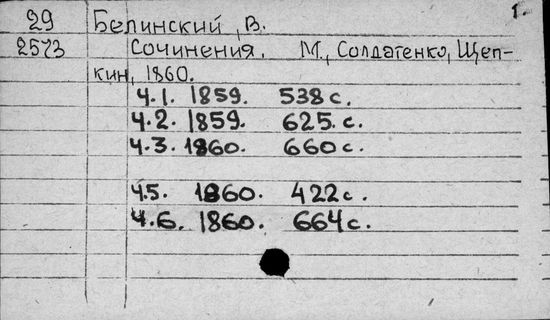 29 Белинский, В. 1.
2573 Сочинения. М., Солдатенко, Щеп-
кин, 1860.
Ч.1. 1859. 538 с.
Ч.2. 1859. 625. с.
Ч.3. 1860. 660 с.
Ч5. 1860. 422 с.
Ч.6. 1860. 664 с.